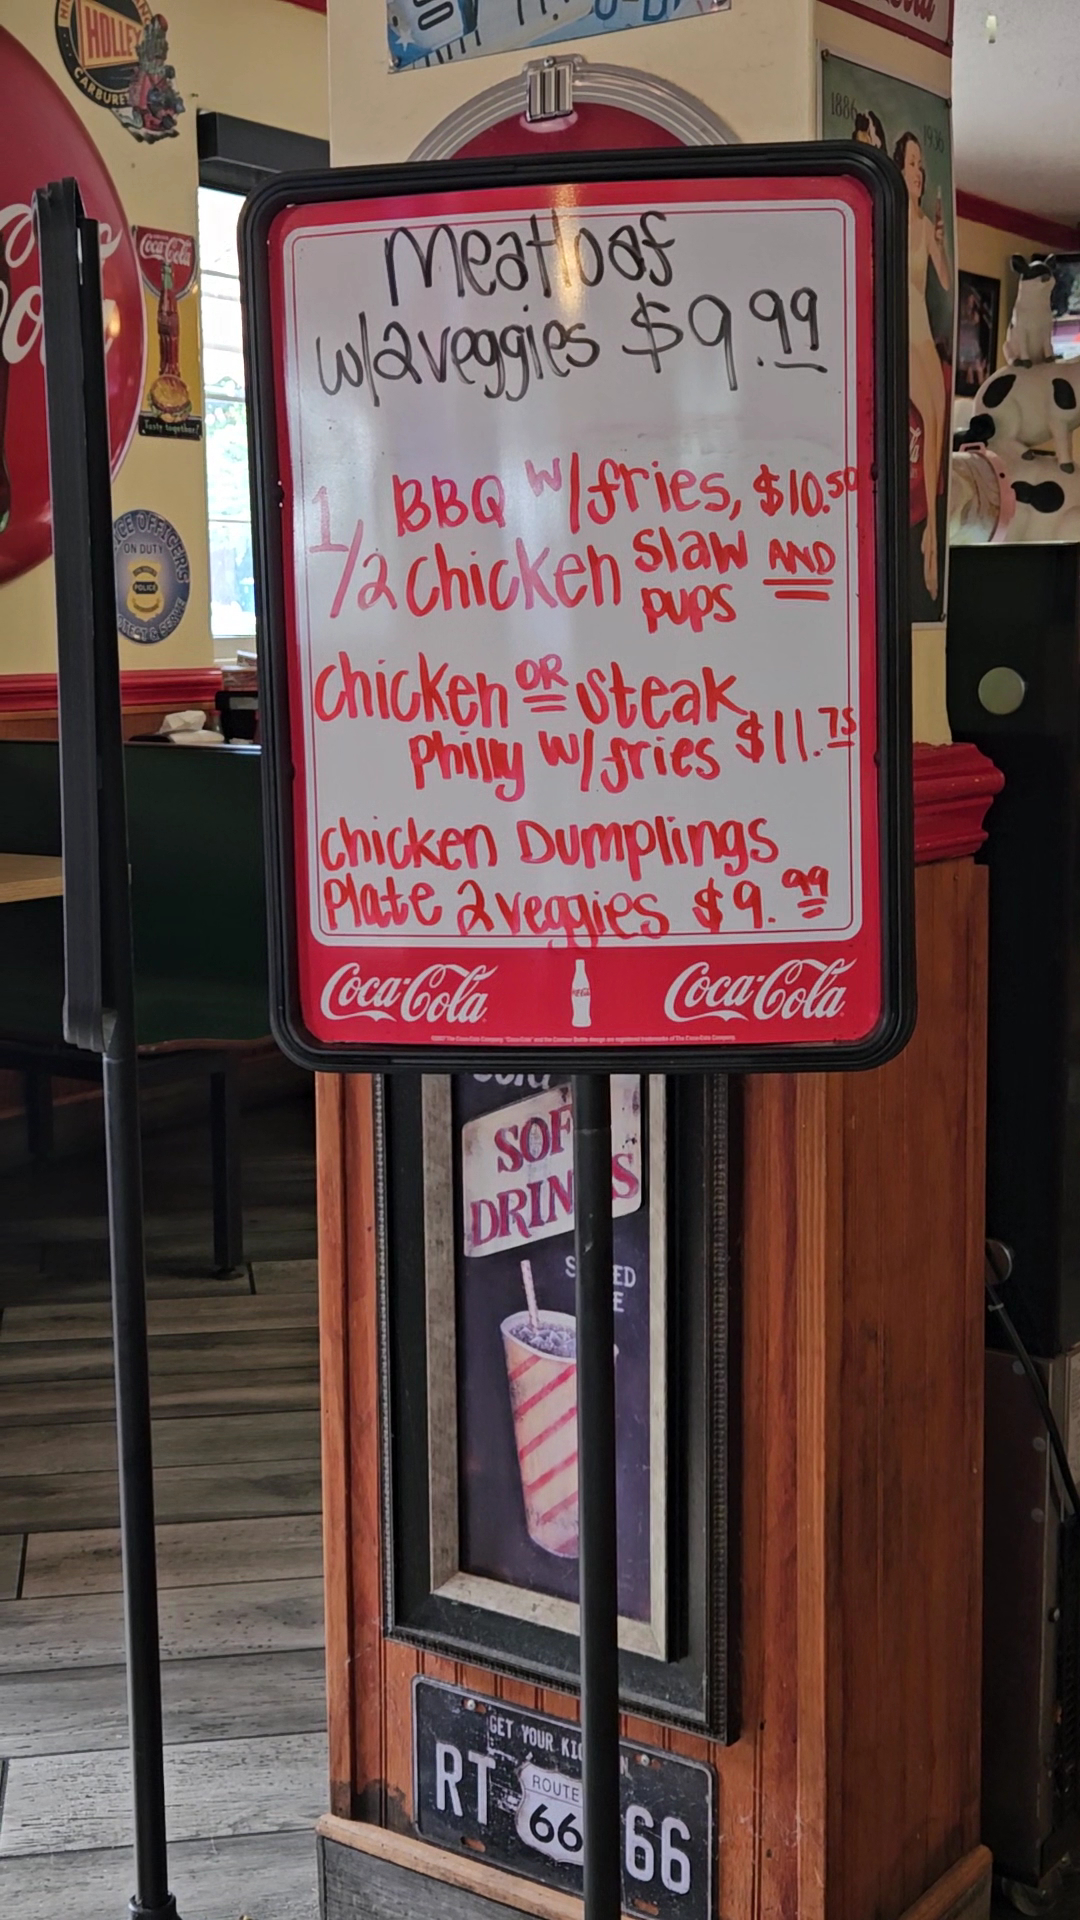 HOLLEY
CARBURE
1886
1936
Coca-Cola
Tasty together!
ICE OFFICERS
ON DUTY
POLICE
TECT & SERVE
Meatloaf
w/2veggies $9.99
1/2 BBQ w/fries, $10.50
Chicken slaw AND
pups
Chicken OR steak
Philly w/fries $11.75
Chicken Dumplings
Plate 2veggies $9.99
Coca-Cola Coca-Cola
SOF
DRIN S
S ED
E
GET YOUR KIC N
RT ROUTE 66
66